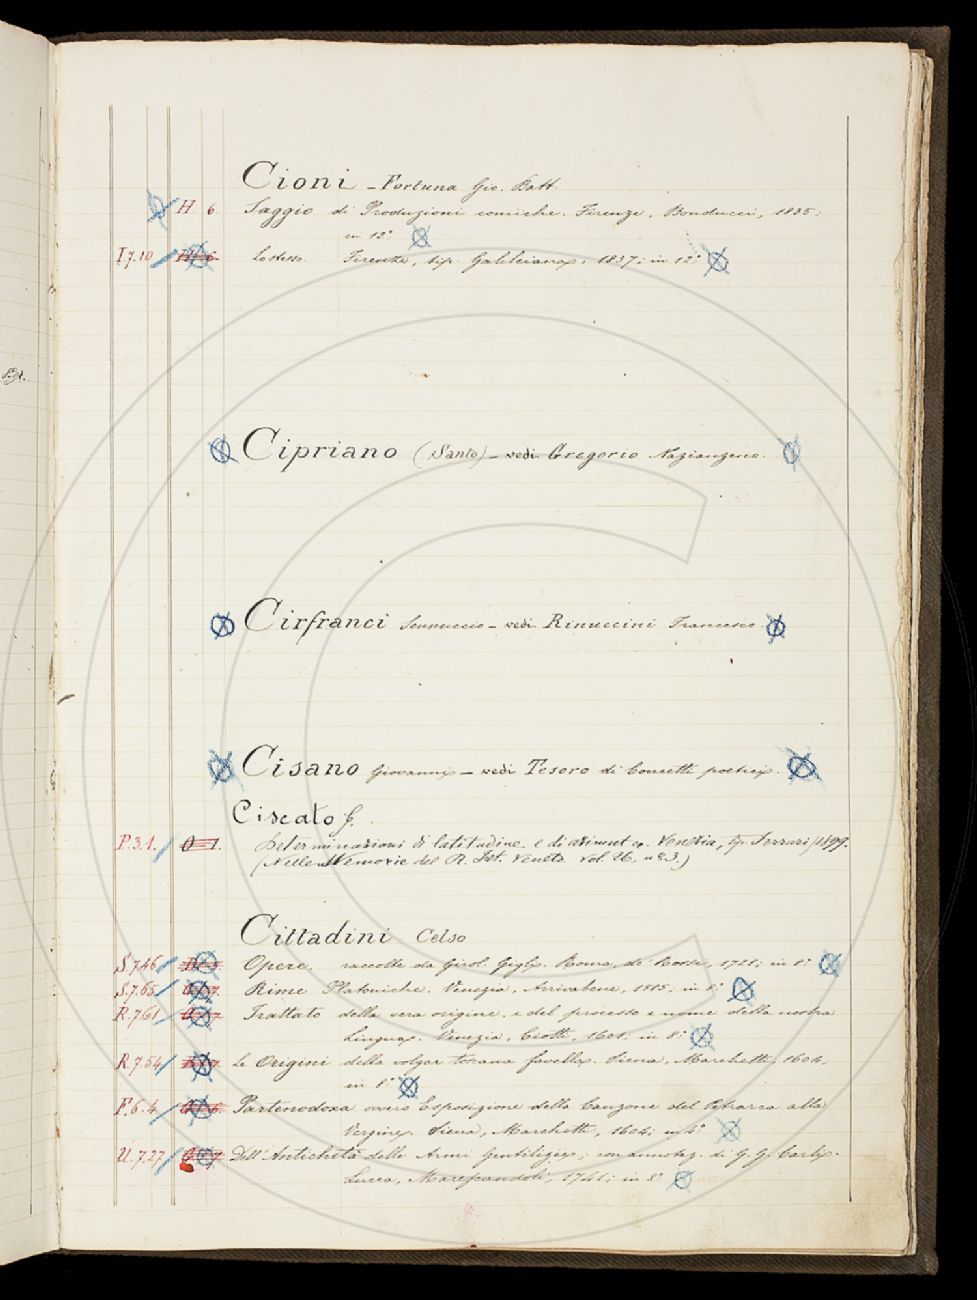 Cioni - Fortuna Gio. Batt.
H 6. Saggio di Produzioni comiche. Firenze, Bonducci, 1835;
in 12º
I 7.10 Lo stesso. Firenze, tip. Galileiana, 1837; in 12º
Cipriano (Santo) - vedi Gregorio Nazianzeno.
Cirfranci Sennuccio - vedi Rinuccini Francesco.
Cisano Giovanni - vedi Tesoro di Concetti poetici.
Ciscato G.
P. 3.1. Determinazioni di latitudine e di azimut Venezia, tip. Ferrari, 1899.
(Nelle Memorie del R. Ist. Veneto vol 26, nº 3.)
Cittadini Celso
S.7.46 Opere, raccolte da Girol. Gigli. Roma, de' Rossi, 1721; in 8º
S.7.65 Rime Platoniche. Venezia, Arrivabene, 1585; in 8º
R.7.61 Trattato della vera origine, e del processo e nome della nostra
Lingua. Venezia, Ciotti, 1601, in 8º
R 7.54 Le Origini della volgar toscana favella. Siena, Marchetti, 1604;
in 8º
F.6.4 Partenodoxa ovvero Esposizione della Canzone del Petrarca alla
Vergine. Siena, Marchetti, 1604; in 4º
U.7.27 Dell'Antichità delle Armi Gentilizie; con annotaz. di G. G. Carli.
Lucca, Marescandoli, 1741; in 8º